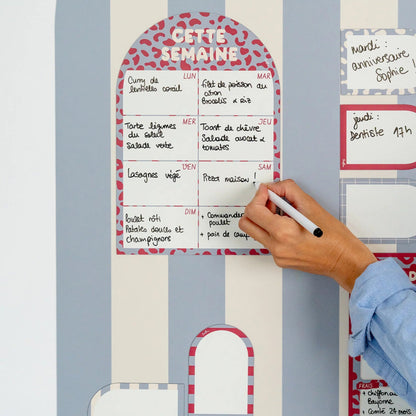 CETTE
SEMAINE
LUN
Curry de
lentilles corail
MAR
filet de poisson au
citron
Brocolis & riz
MER
Tarte légumes
du soleil
Salade verte
JEU
Toast de chèvre
Salade avocat &
tomates
VEN
Lasagnes végé
SAM
Pizza maison !
DIM
Poulet rôti
Patates douces et
champignons
+ Commander
poulet
+ pain de camp
mardi :
anniversaire
Sophie !
jeudi :
Dentiste 17h
FRAIS
+ chiffon
Bayonne
+ Comté 24 mois